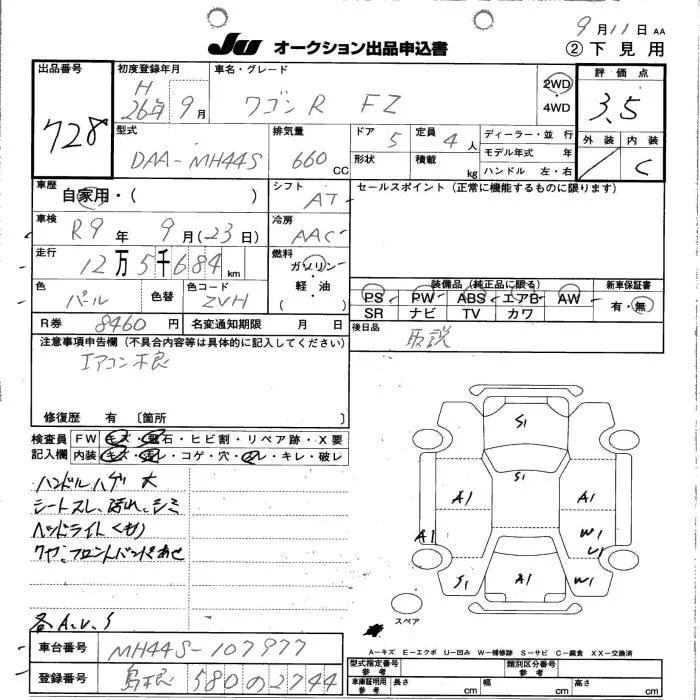 9月11日 AA
JU オークション出品申込書
② 下見用
出品番号
728
初度登録年月
H
26年 9月
車名・グレード
ワゴンR FZ
2WD
4WD
評価点
3.5
外装 内装
C
型式
DAA-MH44S
排気量
660 CC
ドア 5
形状
定員 4人
積載 kg
ディーラー・並行
モデル年式 年
ハンドル 左・右
車歴
自家用・( )
シフト
AT
セールスポイント(正常に機能するものに限ります)
車検
R9年 9月(23日)
冷房
AAC
走行
12万5千684km
燃料
ガソリン・
軽油
( )
色
パール
色替
色コード
ZVH
装備品(純正品に限る)
PS PW ABS エアB AW
SR ナビ TV カワ
新車保証書
有・無
R券 8460円
名変通知期限 月 日
後日品
取説
注意事項申告欄(不具合内容等は具体的に記入してください)
エアコン不良
修復歴 有 〔箇所 〕
検査員
記入欄
FW キズ・飛石・ヒビ割・リペア跡・X要
内装 キズ・汚レ・コゲ・穴・スレ・キレ・破レ
ハンドルハゲ 大
シートスレ、汚れ、シミ
ヘッドライトくもり
ワヤ、フロントバンパあせ
各A.U.S
S1
S1
A1
A1
A1
W1
U1
S1
A1
W1
スペア
A-キズ E-エクボ U-凹み W-補修跡 S-サビ C-腐食 XX-交換済
車台番号
MH44S-107977
登録番号
島根 580 の 2744
型式指定番号
参考
類別区分番号
参考
車庫証明用
参考
長さ cm
幅 cm
高さ cm